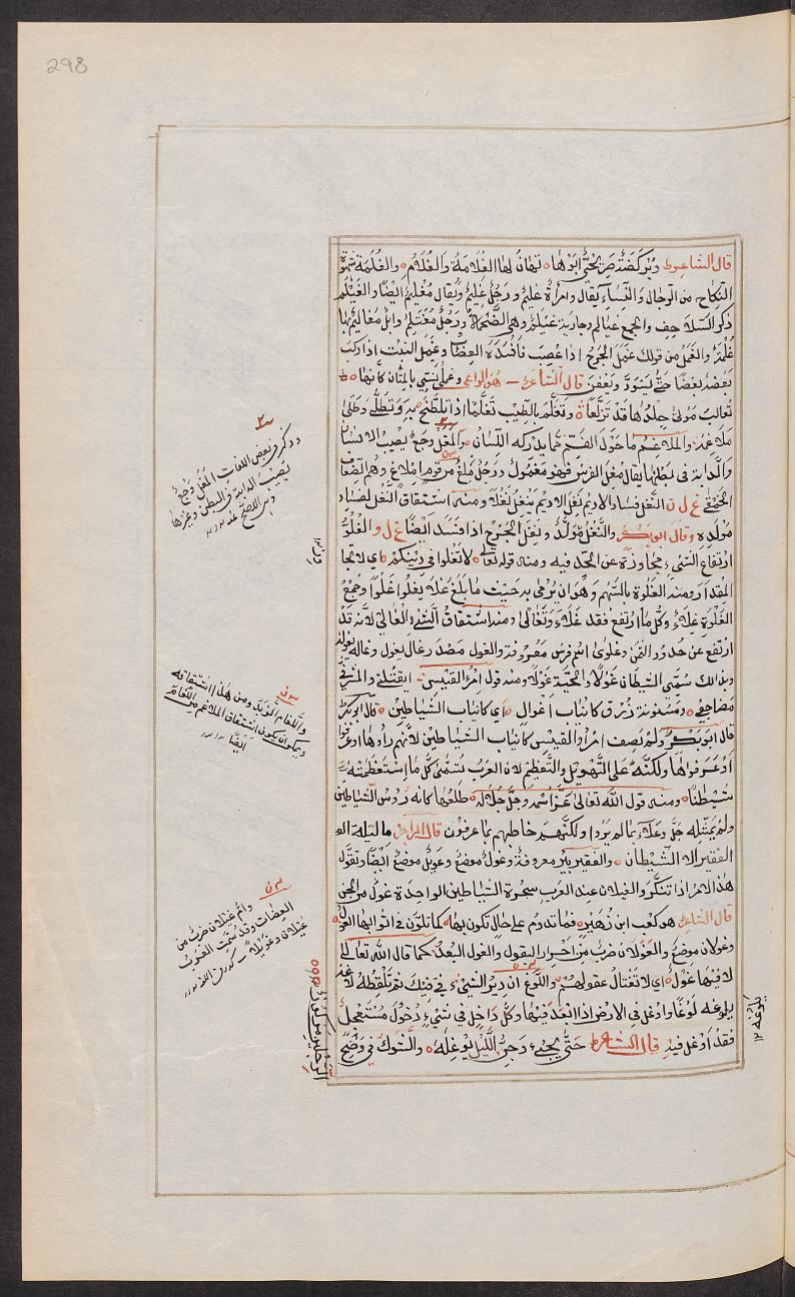 298
قال الشاعر وَمُرْكِضَةٌ صَرِيحِيٌّ ابوها تهان لها الغلامة والغلام والغلمة شهوة
النكاح من الرجال والنساء يقال وامرأة غليم ورجل غليم ويقال مغليم ايضًا والغيلم
ذكر السلاحف والجمع غيالم وجارية غيلم وهى الضخمة ورجل مغتلم وابل مغاليم بها
غلمة والغمل من قولك غمل الجرح اذا عصب فافسده العصاب وغمل النبت اذا ركب
بعضه بعضا حتى يسود ويعفن قال الشاعر هو الراعى وغملى نصى بالمتان كانها
ثعالب موتى جلدها قد تزلعا وتغلم بالطيب تغلما اذا تلطخ به
ملاغمه والملاغم ما حول الفم مما يدركه اللسان والمغل وجع يصيب الانسان
والدابة فى بطنها يقال مغل الفرس فهو مغمول ورجل ملغ من قوم املاغ وهم الضعاف
الحمقى غ ل ن النغل فساد الاديم نغل الاديم ينغل نغلا ومنه اشتقاق النغل لفساد
مولده وقال ابو بكر والنغل مولد ونغل الجرح اذا فسد ايضا غ ل و الغلو
ارتفاع الشىء ومجاوزة عن الحد فيه ومنه قوله تعالى لا تغلوا فى دينكم اى لا تجا
المقدار ومنه الغلوة بالسهم وهو ان يرمى به حيث ما بلغ غلا يغلوا غلوا وجمع
الغلوة غلاء وكل ما ارتفع فقد غلا وتغالى ومنه اشتقاق الشىء الغالى لانه قد
ارتفع عن حدود الثمن وغلوى اسم فرس معروفة والغول مصدر غال يغول وغاله يغوله
وبذلك سمى الشيطان غولا والحية غولا ومنه قول امرؤ القيس ايقتلنى والمشرفى
مضاجعى ومسنونة زرق كانياب اغوال اى كانياب الشياطين قال ابو بكر
قال ابو بكر ولم يصف امرأ القيس كانياب الشياطين لانهم رأوها او عرفوا
او عرفوها ولكنه على التهويل والتعظيم لان العرب تسمى كل ما استعظمته
شيطانا ومنه قول الله تعالى عز اسمه وجل جلاله طلعها كانه رؤس الشياطين
ولم يمثله جل وعلا بما لم يروا ولكنهم خاطبهم بما عرفون قال الراجز ما ليلة
الفقير الا الشيطان والفقير بير معروفة وغول موضع وعويل موضع ايضا وتغول
هذا الامر اذا تنكر والغيلان عند العرب سحرة الشياطين الواحدة غول من الجن
قال الشاعر هو كعب ابن زهير فما تدوم على حال تكون بها كما تلون فى اثوابها الغول
وغولان موضع والغولان ضرب من احرار البقول والغول البعد كما قال الله تعالى
لا فيها غول اى لا تغتال عقولهم واللوغ ان تدير الشىء فى فيك ثم تلفظه لاغه
يلوغه لوغا واوغل فى الارض اذا ابعد فيها وكل داخل فى شىء دخول مستعجل
فقد اوغل فيه قال الشاعر حتى يجىء وجن الليل يوغله والشوك فى وضح
الرجلين مركوز
وذكر فى بعض اللغات المغل وجع
يصيب الدابة فى البطن وغيرها
واللغام الزبد ومن هذا اشتقاقه
ويمكن ان يكون اشتقاق الملاغم من اللغام
ايضا
وام غيلان ضرب من
العضاة وقد سمت العرب
غيلان وغويلا
يلوغه